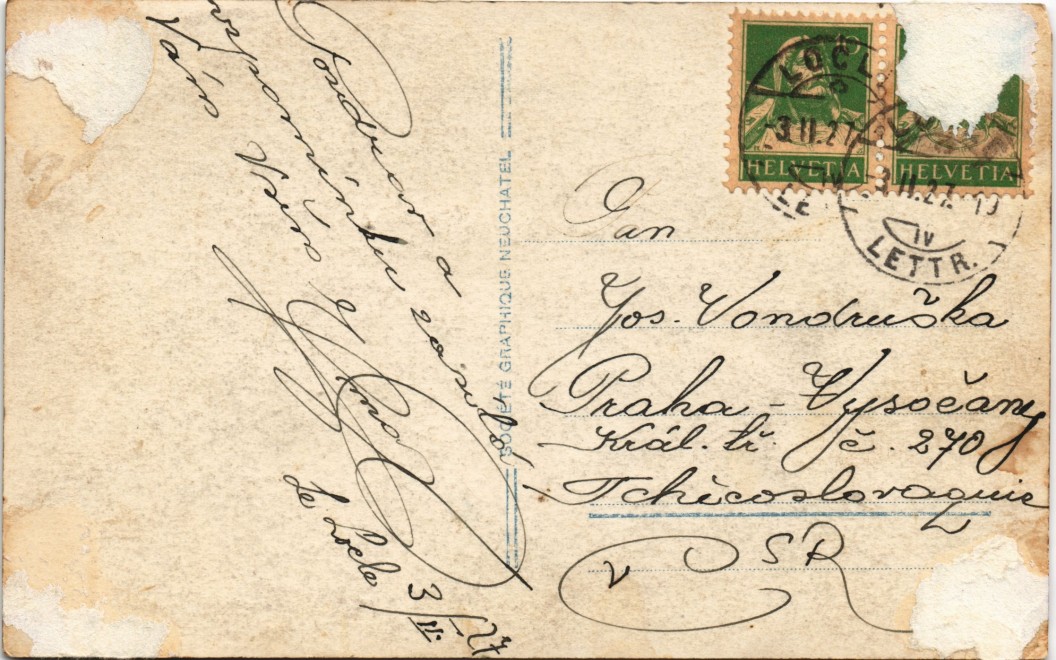 Pozdrav a
vzpomínku zasílá
Vám Váš
Le Locle 3/II 27
SOCIÉTÉ GRAPHIQUE NEUCHATEL
HELVETIA HELVETIA
3.II.27
3.II.27
IV
LETTR.
Pan
Jos. Vondruška
Praha - Vysočany
Král. tř. č. 270
Tchècoslovaquie
v ČSR